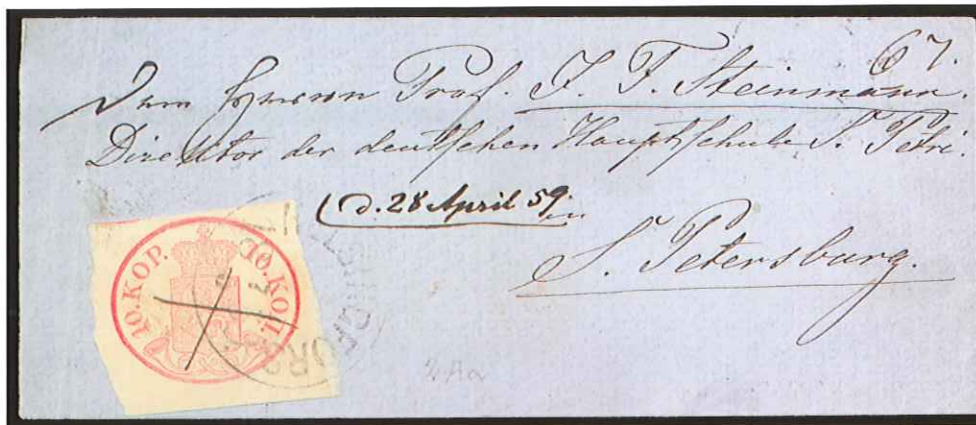 67.
Dem Herrn Prof. F. F. Steinmann.
Director der deutschen Hauptschule S. Petri.
d. 28 April 59.
in
S. Petersburg.
10.KOP. 10.КОП.